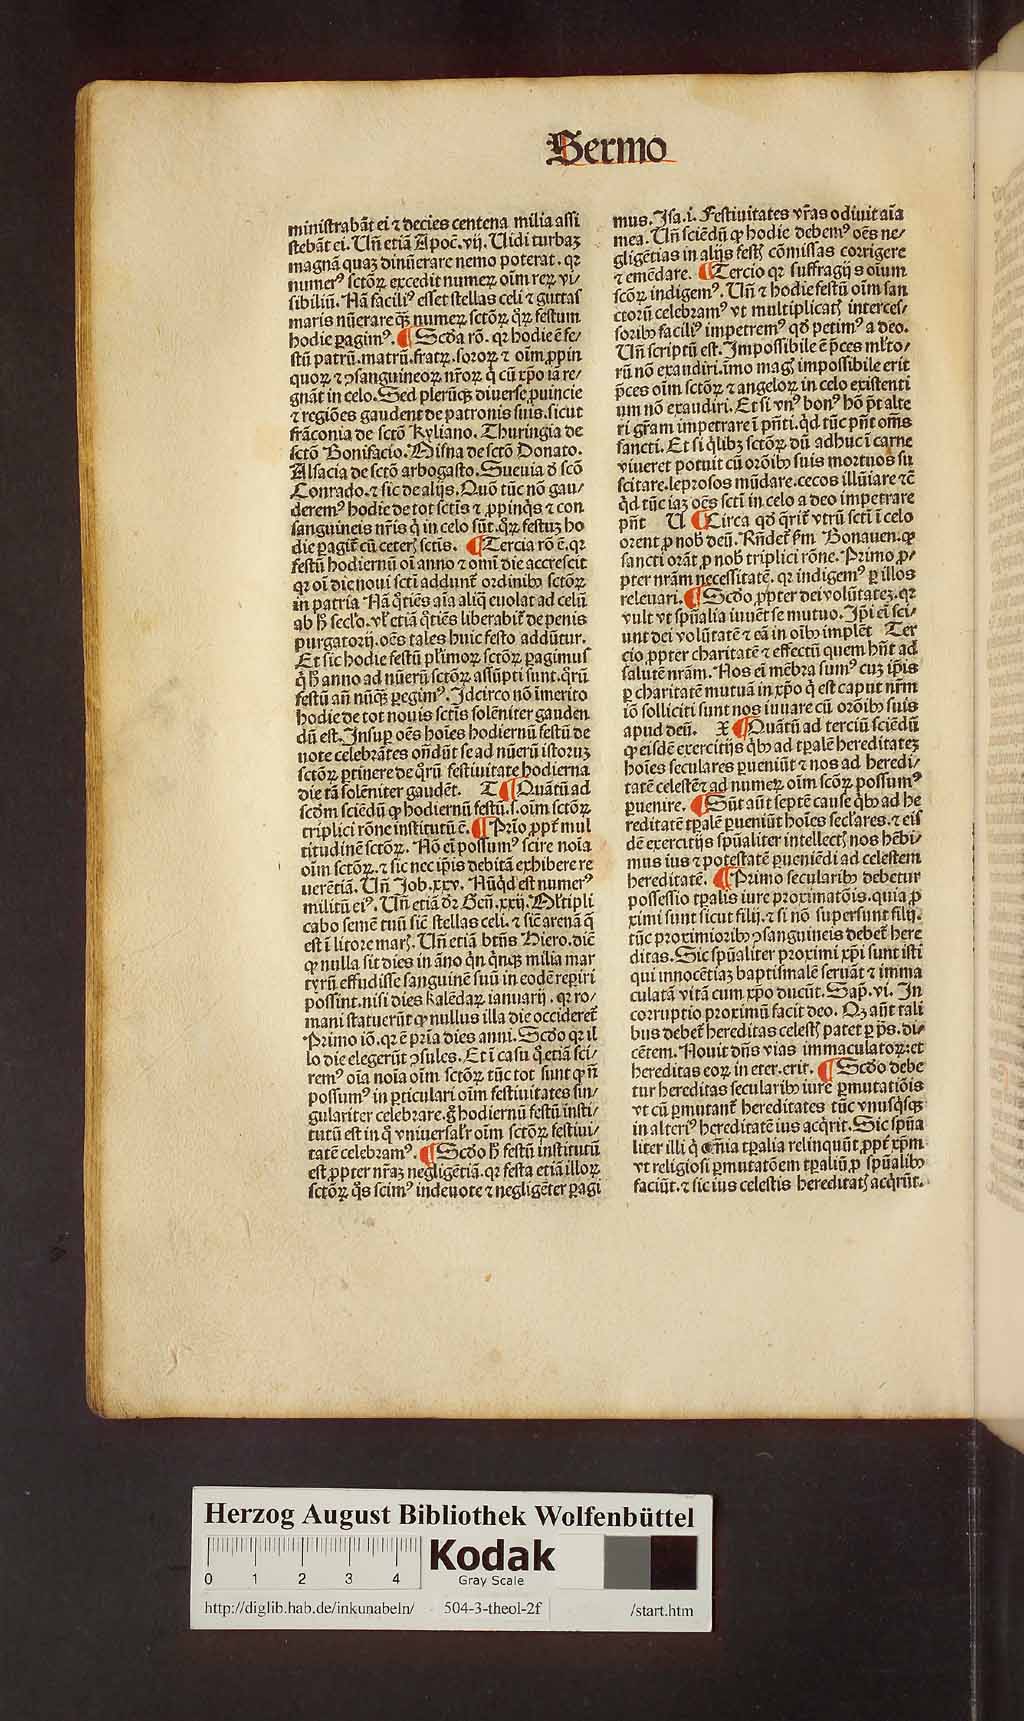 Sermo
ministrabāt ei ⁊ decies centena milia assi
stebāt ei. Uñ etiā Apoc̄. vij. Uidi turbaꝫ
magnā quaꝫ dinūerare nemo poterat. qꝛ
numerꝰ sctōꝝ excedit numeꝝ oīm reꝝ vi⸗
sibiliū. Nā faciliꝰ esset stellas celi ⁊ guttas
maris nūerare qꝫ̄ numeꝝ sctōꝝ q̊ꝝ festum
hodie ꝑagimꝰ. ¶ Scd̄a rō. qꝛ hodie ē fe⸗
stū patrū. matrū. fratꝝ. soroꝝ ⁊ oīm ꝓpin
quoꝝ ⁊ ꝯsanguineoꝝ nr̄oꝝ q̇ cū xp̄o iā re⸗
gnāt in celo. Sed plerūqꝫ diuerse ꝓuincie
⁊ regiōes gaudent de patronis suis. sicut
frāconia de sctō Kyliano. Thuringia de
sctō Bonifacio. Misna de sctō Donato.
Alsacia de sctō arbogasto. Sueuia ď scō
Conrado. ⁊ sic de alijs. Quō tūc nō gau⸗
deremꝰ hodie de tot sctis ⁊ ꝓpinq̇s ⁊ con
sanguineis nr̄is q̇ in celo sūt. q̊ꝝ festuꝫ ho
die ꝑagit̄ cū ceteris sctīs. ¶ Tercia rō ē. qꝛ
festū hodiernū oī anno ⁊ omī die accrescit
qꝛ oī die noui sctī addunt̄ ordinibꝰ sctōꝝ
in patria Nā q̊tiēs aīa aliq̄ euolat ad celū
ab h̄ secl̄o. vl̄ etiā q̊tiēs liberabit̄ de penis
purgatorij. oēs tales huic festo addūtur.
Et sic hodie festū pl̄imoꝝ sctōꝝ ꝑagimus
q̇ h̄ anno ad nūerū sctōꝝ assūpti sunt. q̊rū
festū añ nūqꝫ̄ ꝑegimꝰ. Idcirco nō īmerito
hodie de tot nouis sctīs solēniter gauden
dū est. Insuꝑ oēs hoīes hodiernū festū de
uote celebrātes oñdūt se ad nūerū istoruꝫ
sctōꝝ ꝑtinere de q̊rū festiuitate hodierna
die tā solēniter gaudēt. T ¶ Quātū ad
scd̄m sciēdū ꝙ hodiernū festū. s. oīm sctōꝝ
triplici rōne institutū ē. ¶ Prīo ꝓpt̄ mul
titudinē sctōꝝ. Nō eī possumꝰ scire noīa
oīm sctōꝝ. ⁊ sic nec ip̄is debitā exhibere re
uerētiā. Uñ Job. xxv. Nūq̇d est numerꝰ
militū eiꝰ. Uñ etiā d̄r Geñ. xxij. Ml̄tipli
cabo semē tuū sic̄ stellas celi. ⁊ sic̄ arenā q̄
est ī litore maris. Uñ etiā bt̄ns Hiero. dic̄
ꝙ nulla sit dies in āno q̊n q̇nqꝫ milia mar
tyrū effudisse sanguinē suū in eodē reꝑiri
possint. nisi dies kalēdaꝝ ianuarij. qꝛ ro⸗
mani statuerūt ꝙ nullus illa die occideret̄
Primo iō. qꝛ ē prīa dies anni. Scd̄o qꝛ il
lo die elegerūt ꝯsules. Et ī casu q̊ etiā sci⸗
remꝰ oīa noīa oīm sctōꝝ tūc tot sunt ꝙ ñ
possumꝰ in ꝑticulari oīm festiuitates sin⸗
gulariter celebrare. g̊ hodiernū festū insti⸗
tutū est in q̊ vniuersalr̄ oīm sctōꝝ festiui⸗
tatē celebramꝰ. ¶ Scd̄o h̄ festū institutū
est ꝓpter nr̄aꝫ negligētiā. qꝛ festa etiā illoꝝ
sctōꝝ q̊s scimꝰ indeuote ⁊ negligēter ꝑagi
mus. Isa. i. Festiuitates vr̄as odiuit aīa
mea. Uñ sciēdū ꝙ hodie debemꝰ oēs ne⸗
gligētias in alijs festis cōmissas corrigere
⁊ emēdare. ¶ Tercio qꝛ suffragijs oīum
scōꝝ indigemꝰ. Uñ ⁊ hodie festū oīm san
ctorū celebramꝰ vt multiplicatis interces⸗
soribꝰ faciliꝰ impetremꝰ qd̄ petimꝰ a deo.
Uñ scriptū est. Impossibile ē p̄ces ml̄to⸗
rū nō exaudiri. īmo magis impossibile erit
p̄ces oīm sctōꝝ ⁊ angeloꝝ in celo existenti
um nō exaudiri. Et si vnꝰ bonꝰ hō p̄t alte
ri gr̄am impetrare ī pñti. q̇d tūc pñt om̄s
sancti. Et si q̇libꝫ sctōꝝ dū adhuc ī carne
viueret potuit cū orōibꝰ suis mortuos su
scitare. leprosos mūdare. cecos illūīare ⁊c̄
q̇d tūc iaꝫ oēs sctī in celo a deo impetrare
pñt U ¶ Circa qd̄ q̄rit̄ vtrū sctī ī celo
orent ꝓ nob̄ deū. Rñdet̄ ẜm Bonauen. ꝙ
sancti orāt ꝓ nob̄ triplici rōne. Primo ꝓ⸗
pter nr̄am necessitatē. qꝛ indigemꝰ ꝑ illos
releuari. ¶ Scd̄o ꝓpter dei volūtateꝫ. qꝛ
vult vt sp̄ualia iuuēt se mutuo. Ip̄i eī sci⸗
unt dei volūtatē ⁊ eā in oībꝰ implēt Ter
cio ꝓpter charitatē ⁊ effectū quem hñt ad
salutē nr̄am. Nos eī mēbra sumꝰ cuꝫ ip̄is
ꝑ charitatē mutuā in xp̄o q̇ est caput nr̄m
iō solliciti sunt nos iuuare cū orōibꝰ suis
apud deū. X ¶ Quātū ad terciū sciēdū
ꝙ eisdē exercitijs q̇bꝰ ad tꝑalē hereditateꝫ
hoīes seculares ꝑueniūt ⁊ nos ad heredi⸗
tatē celestē ⁊ ad numeꝝ oīm scōꝝ possumꝰ
ꝑuenire. ¶ Sūt aūt septē cause q̇bꝰ ad he
reditatē tꝑalē ꝑueniūt hoīes secl̄ares. ⁊ eis
dē exercitijs sp̄ualiter intellectis nos hēbi⸗
mus ius ⁊ potestatē ꝑueniēdi ad celestem
hereditatē. ¶ Primo secularibꝰ debetur
possessio tꝑalis iure proximatōis. quia ꝓ
ximi sunt sicut filij. ⁊ si nō supersunt filij.
tūc proximioribꝰ ꝯsanguineis debet̄ here
ditas. Sic sp̄ualiter proximi xp̄i sunt isti
qui innocētiaꝫ baptismalē seruāt ⁊ imma
culatā vitā cum xp̄o ducūt. Sap̄. vi. In
corruptio proximū facit deo. Qꝫ aūt tali
bus debet̄ hereditas celestis patet ꝑ p̄s. di⸗
cētem. Nouit dñs vias immaculatoꝝ: et
hereditas eoꝝ in eter. erit. ¶ Scd̄o debe
tur hereditas secularibꝰ iure ꝑmutatiōis
vt cū ꝑmutant̄ hereditates tūc vnusq̇sqꝫ
in alteriꝰ hereditatē ius acq̇rit. Sic sp̄ua
liter illi q̇ om̄ia tꝑalia relinquūt ꝓpt̄ xp̄m
vt religiosi ꝑmutatōem tꝑaliū ꝓ sp̄ualibꝰ
faciūt. ⁊ sic ius celestis hereditatis acq̇rūt.
Herzog August Bibliothek Wolfenbüttel
0 1 2 3 4
Kodak
Gray Scale
http://diglib.hab.de/inkunabeln/ 504-3-theol-2f /start.htm